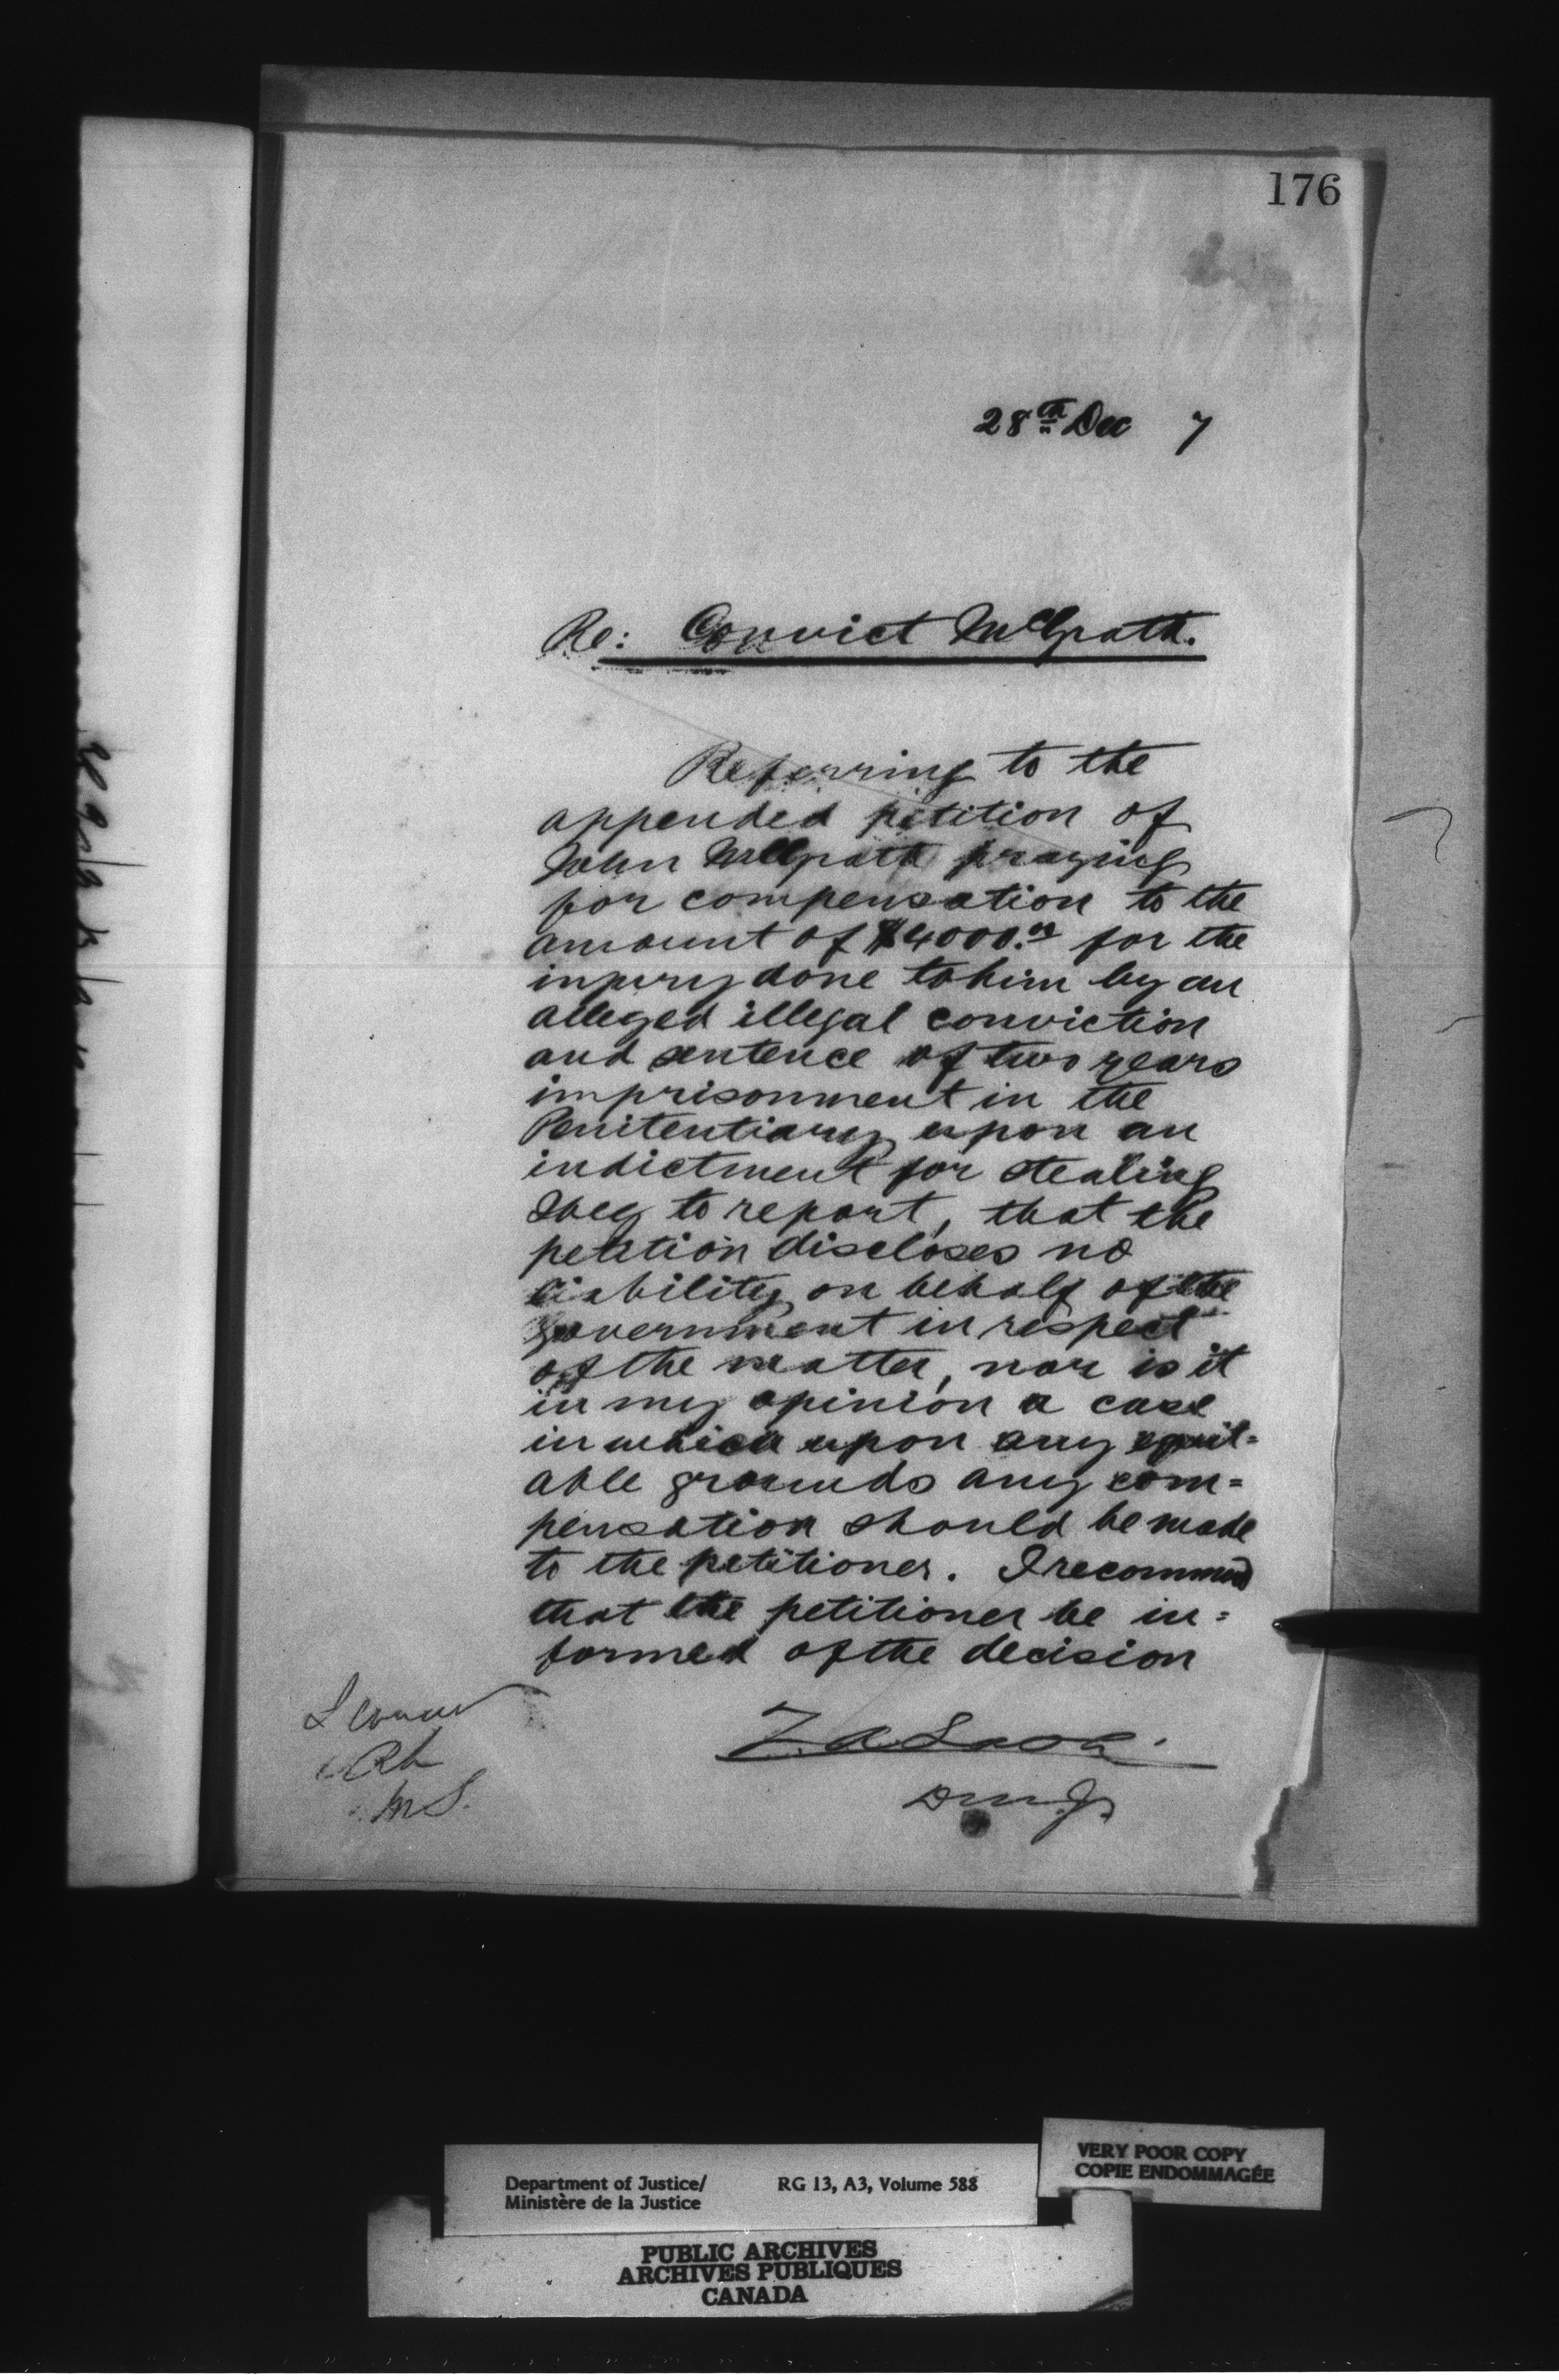 176
28th Dec 7
Re: Convict McGrath.
Referring to the
appended petition of
John McGrath praying
for compensation to the
amount of $4000.00 for the
injury done to him by an
alleged illegal conviction
and sentence of two years
imprisonment in the
Penitentiary upon an
indictment for stealing
I beg to report, that the
petition discloses no
liability on behalf of the
Government in respect
of the matter, nor is it
in my opinion a case
in which upon any equit=
able grounds any com=
pensation should be made
to the petitioner. I recommend
that the petitioner be in=
formed of the decision
I concur
Z. A. Lash
D.M.J.
Department of Justice/
Ministère de la Justice
RG 13, A3, Volume 588
VERY POOR COPY
COPIE ENDOMMAGÉE
PUBLIC ARCHIVES
ARCHIVES PUBLIQUES
CANADA